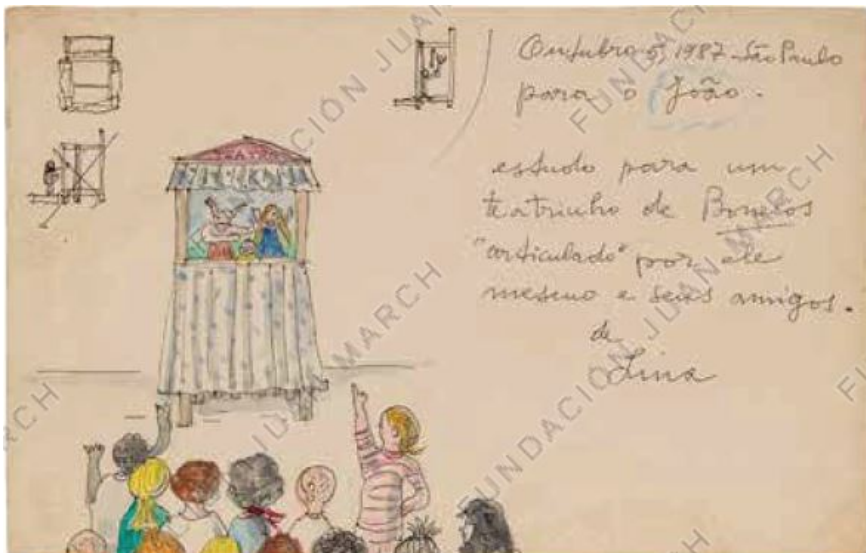 Outubro 5, 1987 - São Paulo
para o João.
estudo para um
teatrinho de Bonecos
"articulado" por ele
mesmo e seus amigos.
de
Lina
FUNDACIÓN JUAN MARCH
FUNDACIÓN JUAN MARCH